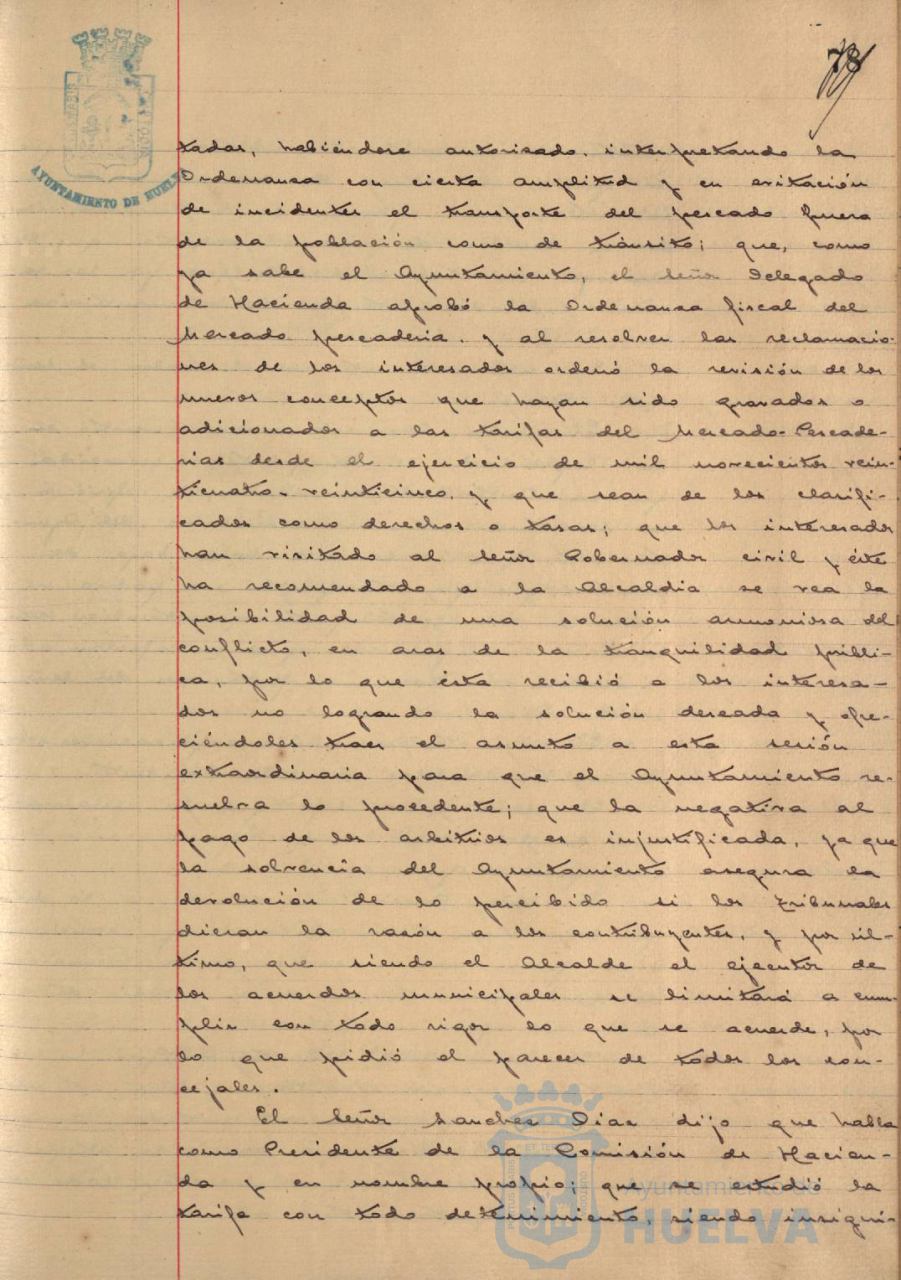 78
AYUNTAMIENTO DE HUELVA
tadas, habiéndose autorizado, interpretando la
Ordenanza con cierta amplitud y en evitación
de incidentes el transporte del pescado fuera
de la población como de tránsito; que, como
ya sabe el Ayuntamiento, el señor Delegado
de Hacienda aprobó la Ordenanza fiscal del
Mercado pescaderia. y al resolver las reclamacio-
nes de los interesados ordenó la revisión de los
nuevos conceptos que hayan sido gravados o
adicionados a las tarifas del Mercado-Pescade-
rias desde el ejercicio de mil novecientos vein-
ticuatro-veinticinco, y que sean de los clasifi-
cados como derechos o tasas; que los interesados
han visitado al señor Gobernador civil y éste
ha recomendado a la Alcaldia se vea la
posibilidad de una solución armoniosa del
conflicto, en aras de la tranquilidad públi-
ca, por lo que ésta recibió a los interesa-
dos no logrando la solución deseada y ofre-
ciéndoles traer el asunto a esta sesión
extraordinaria para que el Ayuntamiento re-
suelva lo procedente; que la negativa al
pago de los arbitrios es injustificada, ya que
la solvencia del Ayuntamiento asegura la
devolución de lo percibido si los Tribunales
dieran la razón a los contribuyentes, y por úl-
timo, que siendo el Alcalde el ejecutor de
los acuerdos municipales se limitará a cum-
plir con todo rigor lo que se acuerde, por
lo que pidió el parecer de todos los con-
cejales.
El señor Sanchez Diaz dijo que habla
como Presidente de la Comisión de Hacien-
da y en nombre propio; que se estudió la
tarifa con todo detenimiento, siendo insigni-
Ayuntamiento de
HUELVA